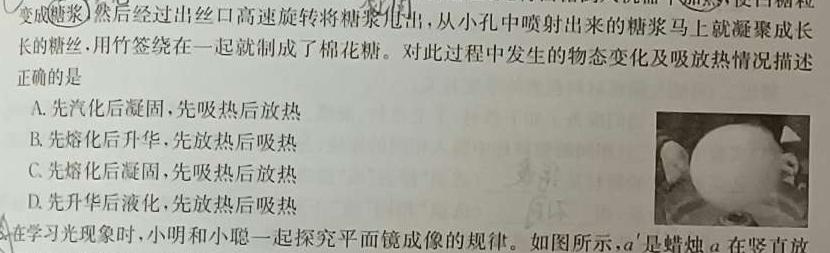 变成糖浆,然后经过出丝口高速旋转将糖浆甩出,从小孔中喷射出来的糖浆马上就凝聚成长
长的糖丝,用竹签绕在一起就制成了棉花糖。对此过程中发生的物态变化及吸放热情况描述
正确的是
A. 先汽化后凝固,先吸热后放热
B. 先熔化后升华,先放热后吸热
C. 先熔化后凝固,先吸热后放热
D. 先升华后液化,先放热后吸热
在学习光现象时,小明和小聪一起探究平面镜成像的规律。如图所示,a′是蜡烛 a 在竖直放